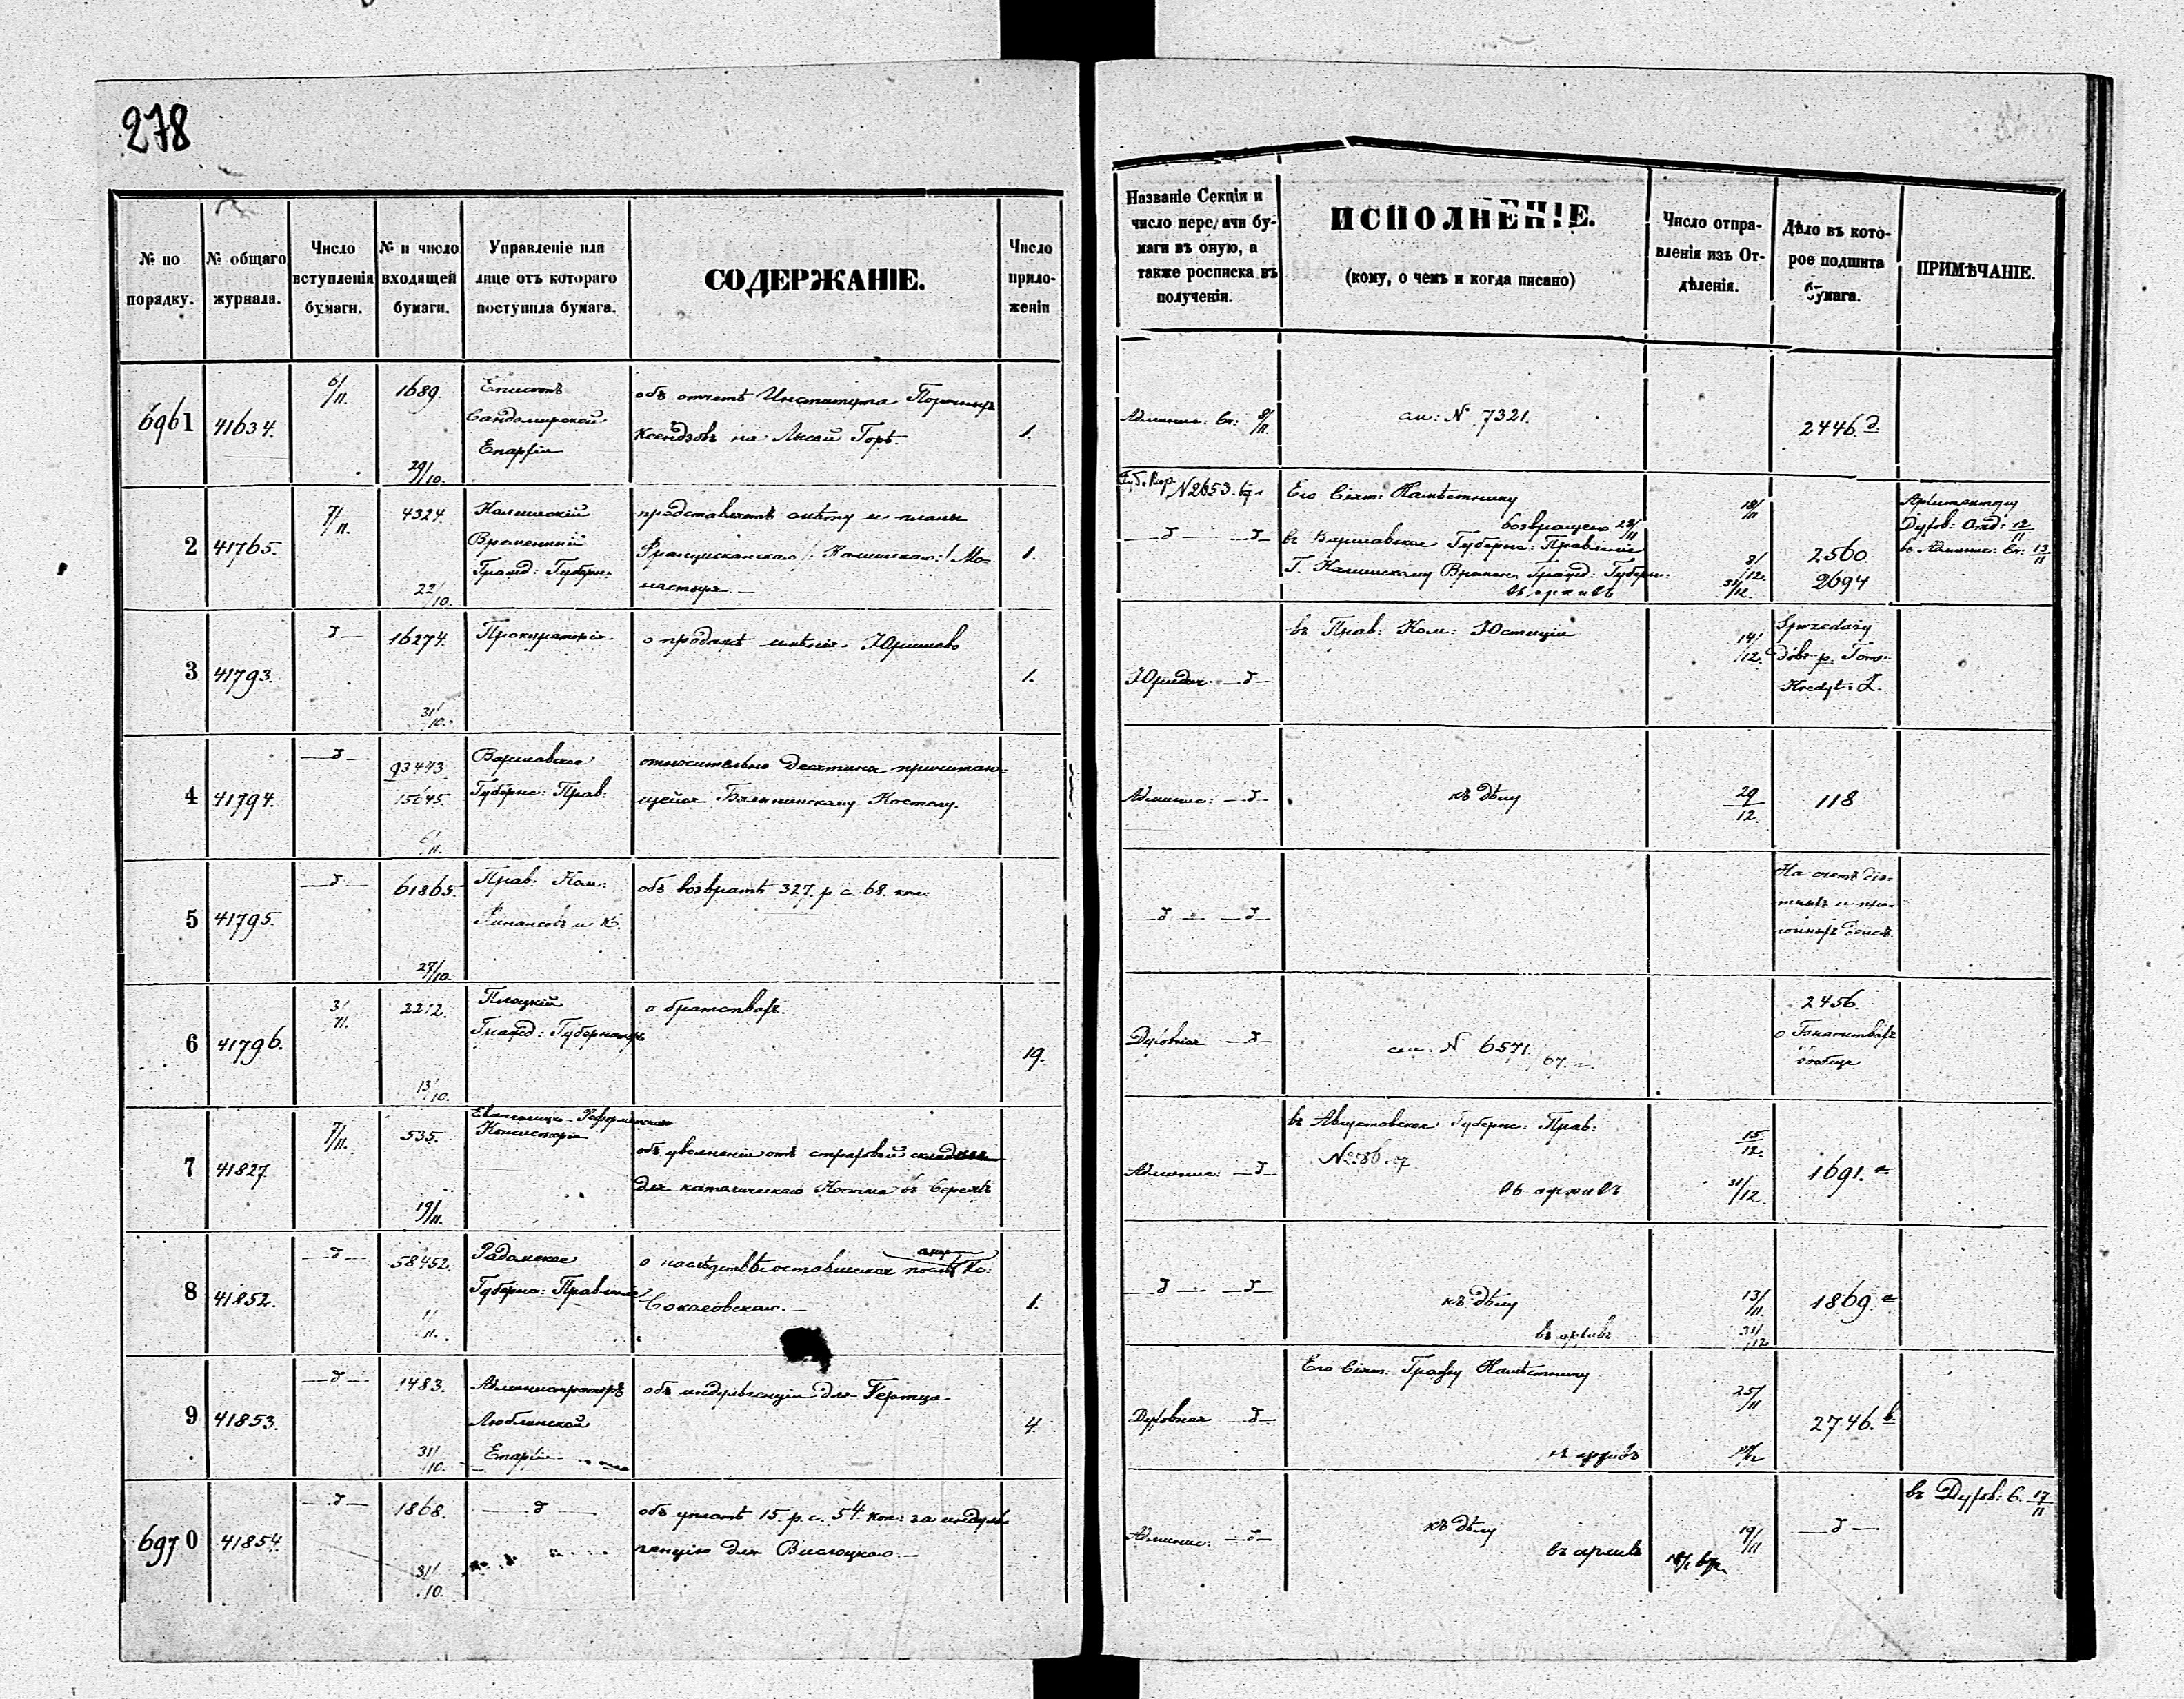 278
№ по порядку.
№ общаго журнала.
Число вступленія бумаги.
№ и число входящей бумаги.
Управленіе или лице отъ котораго поступила бумага.
СОДЕРЖАНІЕ.
Число приложеній
Названіе Секціи и число передачи бумаги въ оную, а также росписка въ полученіи.
ИСПОЛНЕНІЕ.
(кому, о чемъ и когда писано)
Число отправленія изъ Отдѣленія.
Дѣло въ которое подшита бумага.
ПРИМѢЧАНІЕ.
6961 41634. 6/11. 1689. 29/10.
Епископъ
Сандомирской
Епархіи
объ отчетѣ Института
Ксендзовъ на Лысой Горѣ.
1.
Админис: Се: 8/11.
см: № 7321.
2446. д.
2 41765. 7/11. 4324. 22/10.
Калишскій
Временный
Гражд: Губерн:
представляетъ смѣту и планъ
Францисканскаго /: Калишскаго :/ Мо-
настыря —
1.
№ 2653. 67 г.
— д — — д —
Его Сіят: Намѣстнику 18/11
возвращено 28/11
въ Варшавское Губернс: Правленіе 8/12.
Г. Калишскому Времен. Гражд: Губерн:
въ архивъ 31/12.
2560.
2694
Архитектору
Духов: Отд: 12/11
въ Админис: Се: 13/11
3 41793. д — 16274. 31/10.
Прокураторія.
о продажѣ имѣнія
1.
Юридич. — д —
въ Прав: Ком: Юстиціи
14/12.
Sprzedaży
dóbr p. Tow:
Kredyt: Z.
4 41794. — д — 93473. 15645. 6/11.
Варшавское
Губернс: Прав:
относительно десятины причитаю-
щейся Костелу.
Админис: — д —
къ дѣлу
29/12.
118
5 41795. — д — 61865. 27/10.
Прав: Ком:
Финансовъ и К.
объ возвратѣ 327. р. с. 68. коп.
— д — — д —
На счетъ
6 41796. 3/11. 2212. 13/10.
Плоцкій
Гражд: Губернаторъ
о братствахъ.
19.
Духовная — д —
см. № 6571. 67. г.
2456.
о Братствахъ
вообще
7 41827. 7/11. 535. 19/11.
Евангелицко-Реформатская
Консисторія
объ увольненіи отъ страховой складки
для католическаго Костела въ
Админис: — д —
въ Августовское Губернс: Прав:
№ 86. 15/12.
въ архивъ. 31/12.
1691. е
8 41852. — д — 58452. 1/11.
Радомское
Губернс: Правленіе
о наслѣдствѣ оставшемся послѣ Кс:
Соколовскаго. —
1.
— д — — д —
къ дѣлу 13/11.
въ архивъ 31/12
1869. е
9 41853. — д — 1483. 31/10.
Администраторъ
Люблинской
Епархіи
объ индульгенціи для Гертца
4.
Духовная — д —
Его Сіят: Графу Намѣстнику
25/11
въ архивъ
2746. в.
6970 41854. — д — 1868. 31/10.
— д —
объ уплатѣ 15. р. с. 54. коп: за индуль-
генцію для Вислоцкаго. —
Админис: — д —
къ дѣлу 19/11
въ архивъ
— д —
въ Духов: С. 17/11